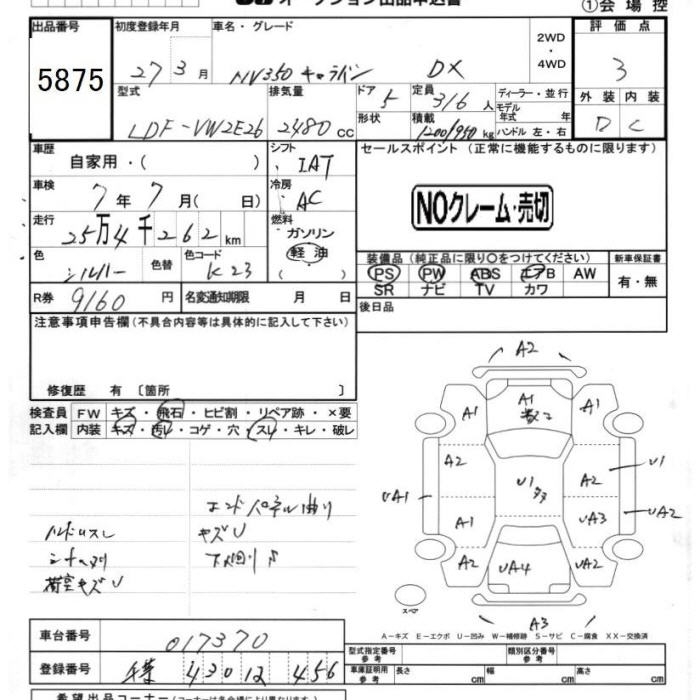 オークション出品申込書
①会場控
出品番号 初度登録年月 車名・グレード 2WD・4WD 評価点
5875 27年3月 NV350 キャラバン DX 3
型式 排気量 ドア 定員 ディーラー・並行 外装 内装
LDF-VW2E26 2480cc 5 3/6人 モデル年式 年 D C
形状 積載 1200/950kg ハンドル 左・右
車歴 自家用・( ) シフト IAT セールスポイント (正常に機能するものに限ります)
車検 7年7月( 日) 冷房 AC NOクレーム・売切
走行 25万4千262km 燃料 ガソリン 軽油
色 シルバー 色替 色コード K23
装備品 (純正品に限り〇をつけてください) 新車保証書
PS PW ABS エアB AW 有・無
SR ナビ TV カワ
R券 9160円 名変通知期限 月 日 後日品
注意事項申告欄 (不具合内容等は具体的に記入して下さい)
修復歴 有 〔箇所 〕
検査員記入欄 FW キズ・飛石・ヒビ割・リペア跡・×要
内装 キズ・汚れ・コゲ・穴・スレ・キレ・破レ
エンドパネル曲り
ハンドルスレ キズU
荷室キズU
A2
A1 A1 A1
A2 U1 A2 U1
UA1 A1 UA3 UA2
A2 UA4 UA2
スペア A3
A-キズ E-エクボ U-凹み W-補修跡 S-サビ C-腐食 XX-交換済
車台番号 017370
型式指定番号 参考 類別区分番号 参考
登録番号 千葉 430 に 456
車庫証明用 参考 長さ cm 幅 cm 高さ cm
希望出品コーナー